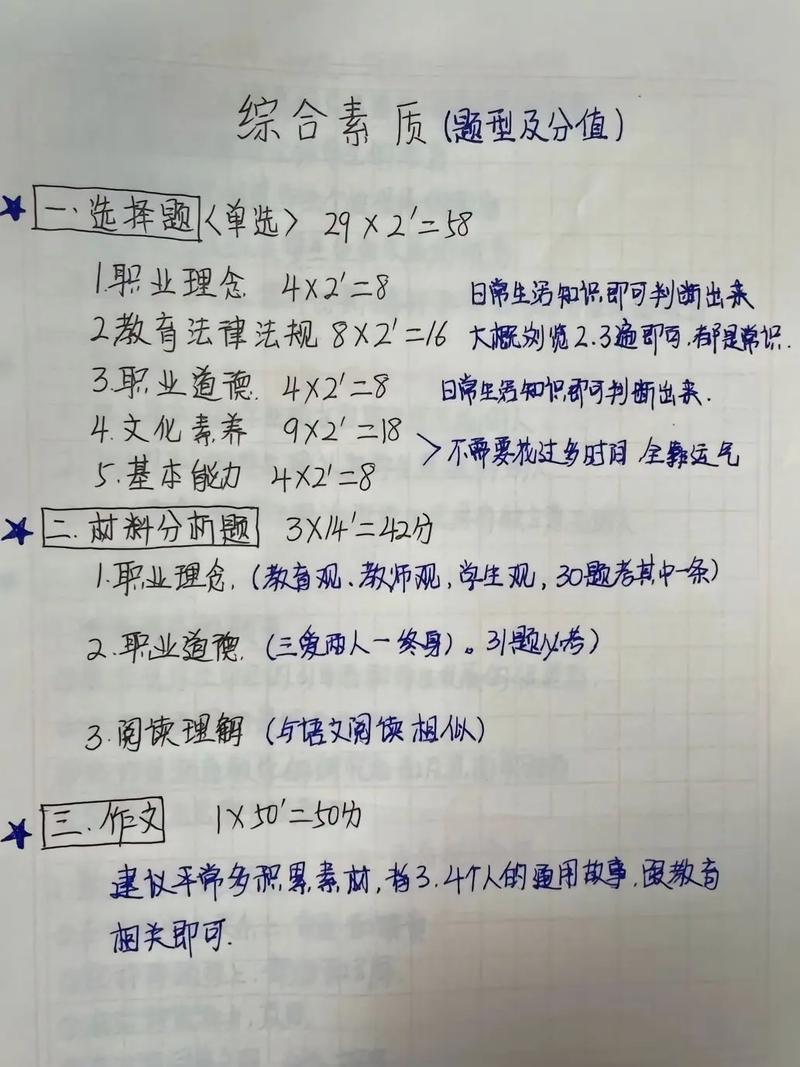 综合素质(题型及分值)
一.选择题〈单选〉 29×2'=58
1.职业理念 4×2'=8 日常生活知识,即可判断出来
2.教育法律法规 8×2'=16 大概浏览2.3遍即可,都是常识.
3.职业道德. 4×2'=8 日常生活知识,即可判断出来.
4.文化素养 9×2'=18
>不需要花过多时间 全靠运气
5.基本能力 4×2'=8
二.材料分析题 3×14'=42分
1.职业理念.(教育观、教师观,学生观,30题考其中一条)
2.职业道德.(三爱两人一终身)。31题必考)
3.阅读理解(与语文阅读相似)
三.作文 1×50'=50分
建议平常多积累素材,有3.4个人的通用故事.跟教育
相关即可.